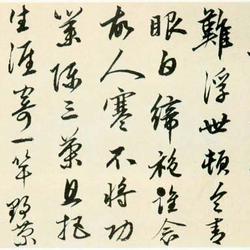 難浮世頓令青
眼白綈袍誰念
故人寒不將功
業陳三策且把
生涯寄一竿野